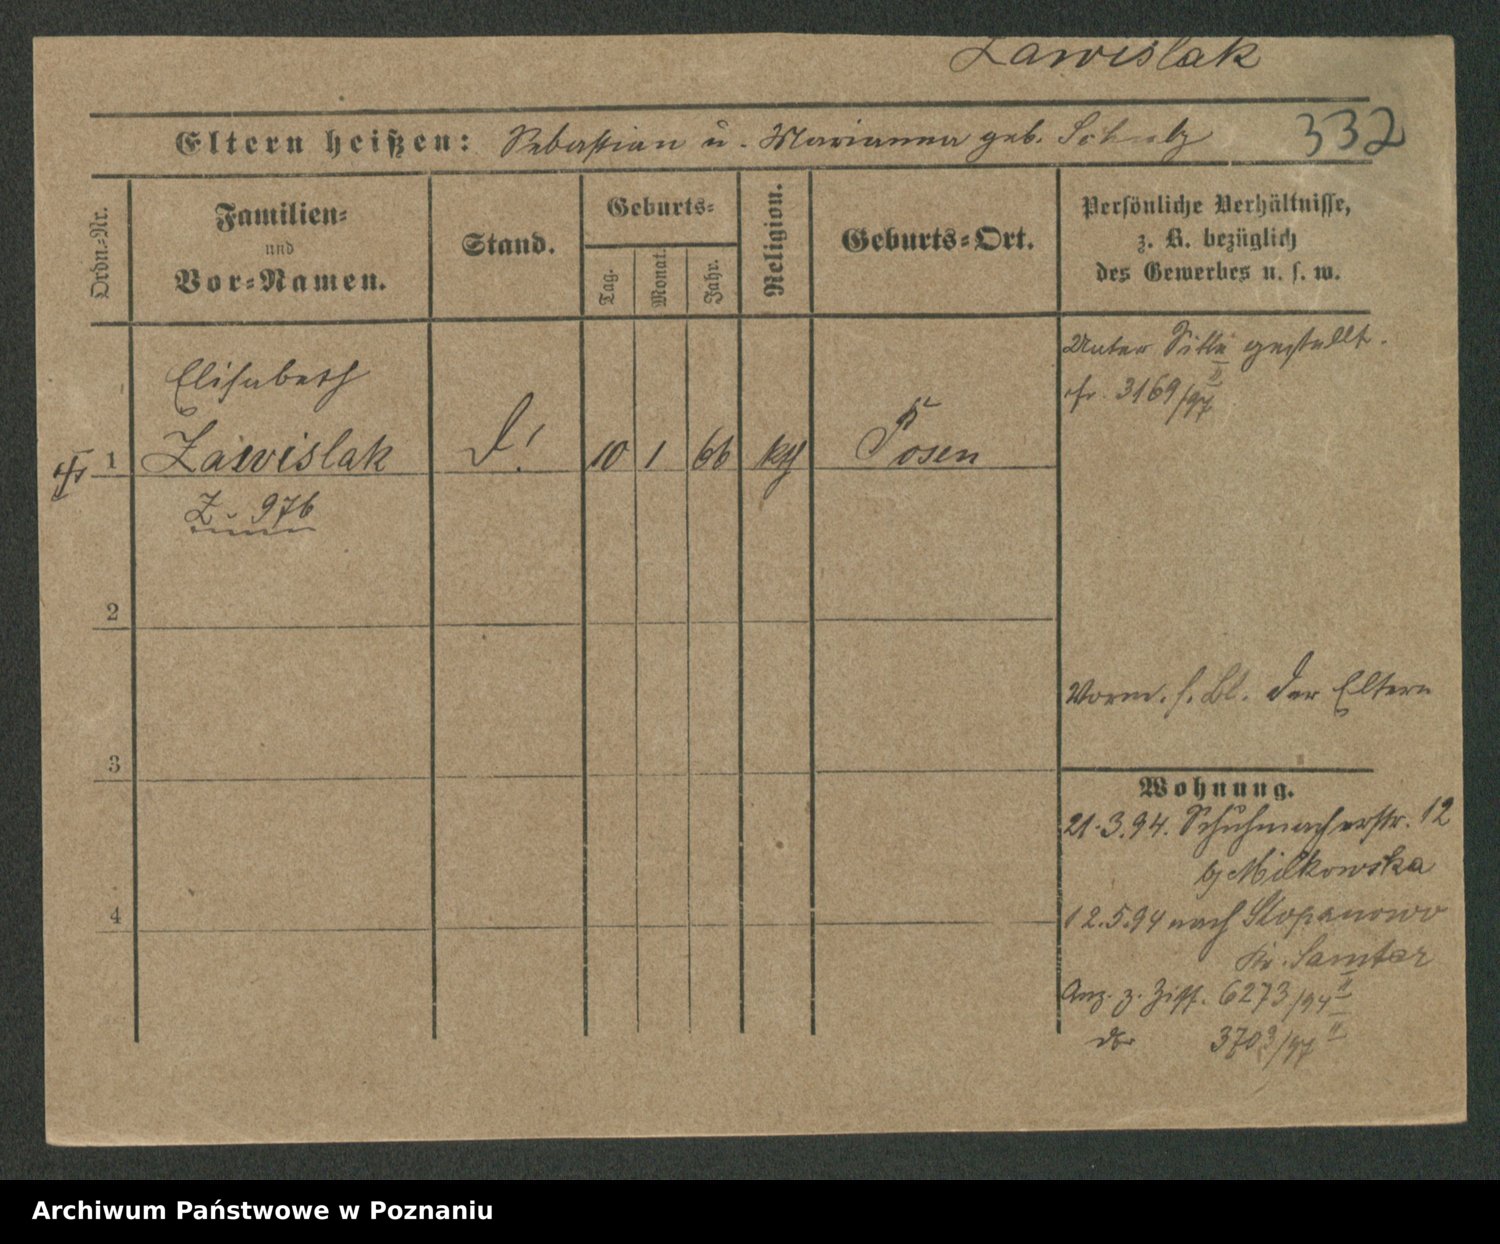 Zawislak
Eltern heißen: Sebastian u. Marianna geb. 332
Ordn.-Nr.
Familien-
und
Vor-Namen.
Stand.
Geburts-
Tag.
Monat.
Jahr.
Religion.
Geburts-Ort.
Persönliche Verhältnisse,
z. B. bezüglich
des Gewerbes u. s. w.
Unter Sitte gestellt.
3169/97 II
Elisabeth
1 Zawislak 10 1 66 kth Posen
Z. 976
2
Vorm. s. Bl. der Eltern
3
Wohnung.
21.3.94. Schuhmacherstr. 12
b/ Milkowska
4
12.5.94 nach Stopanowo
Kr. Samter
Anz. z. Ziff. 6273/94 II
3709/97 II
Archiwum Państwowe w Poznaniu